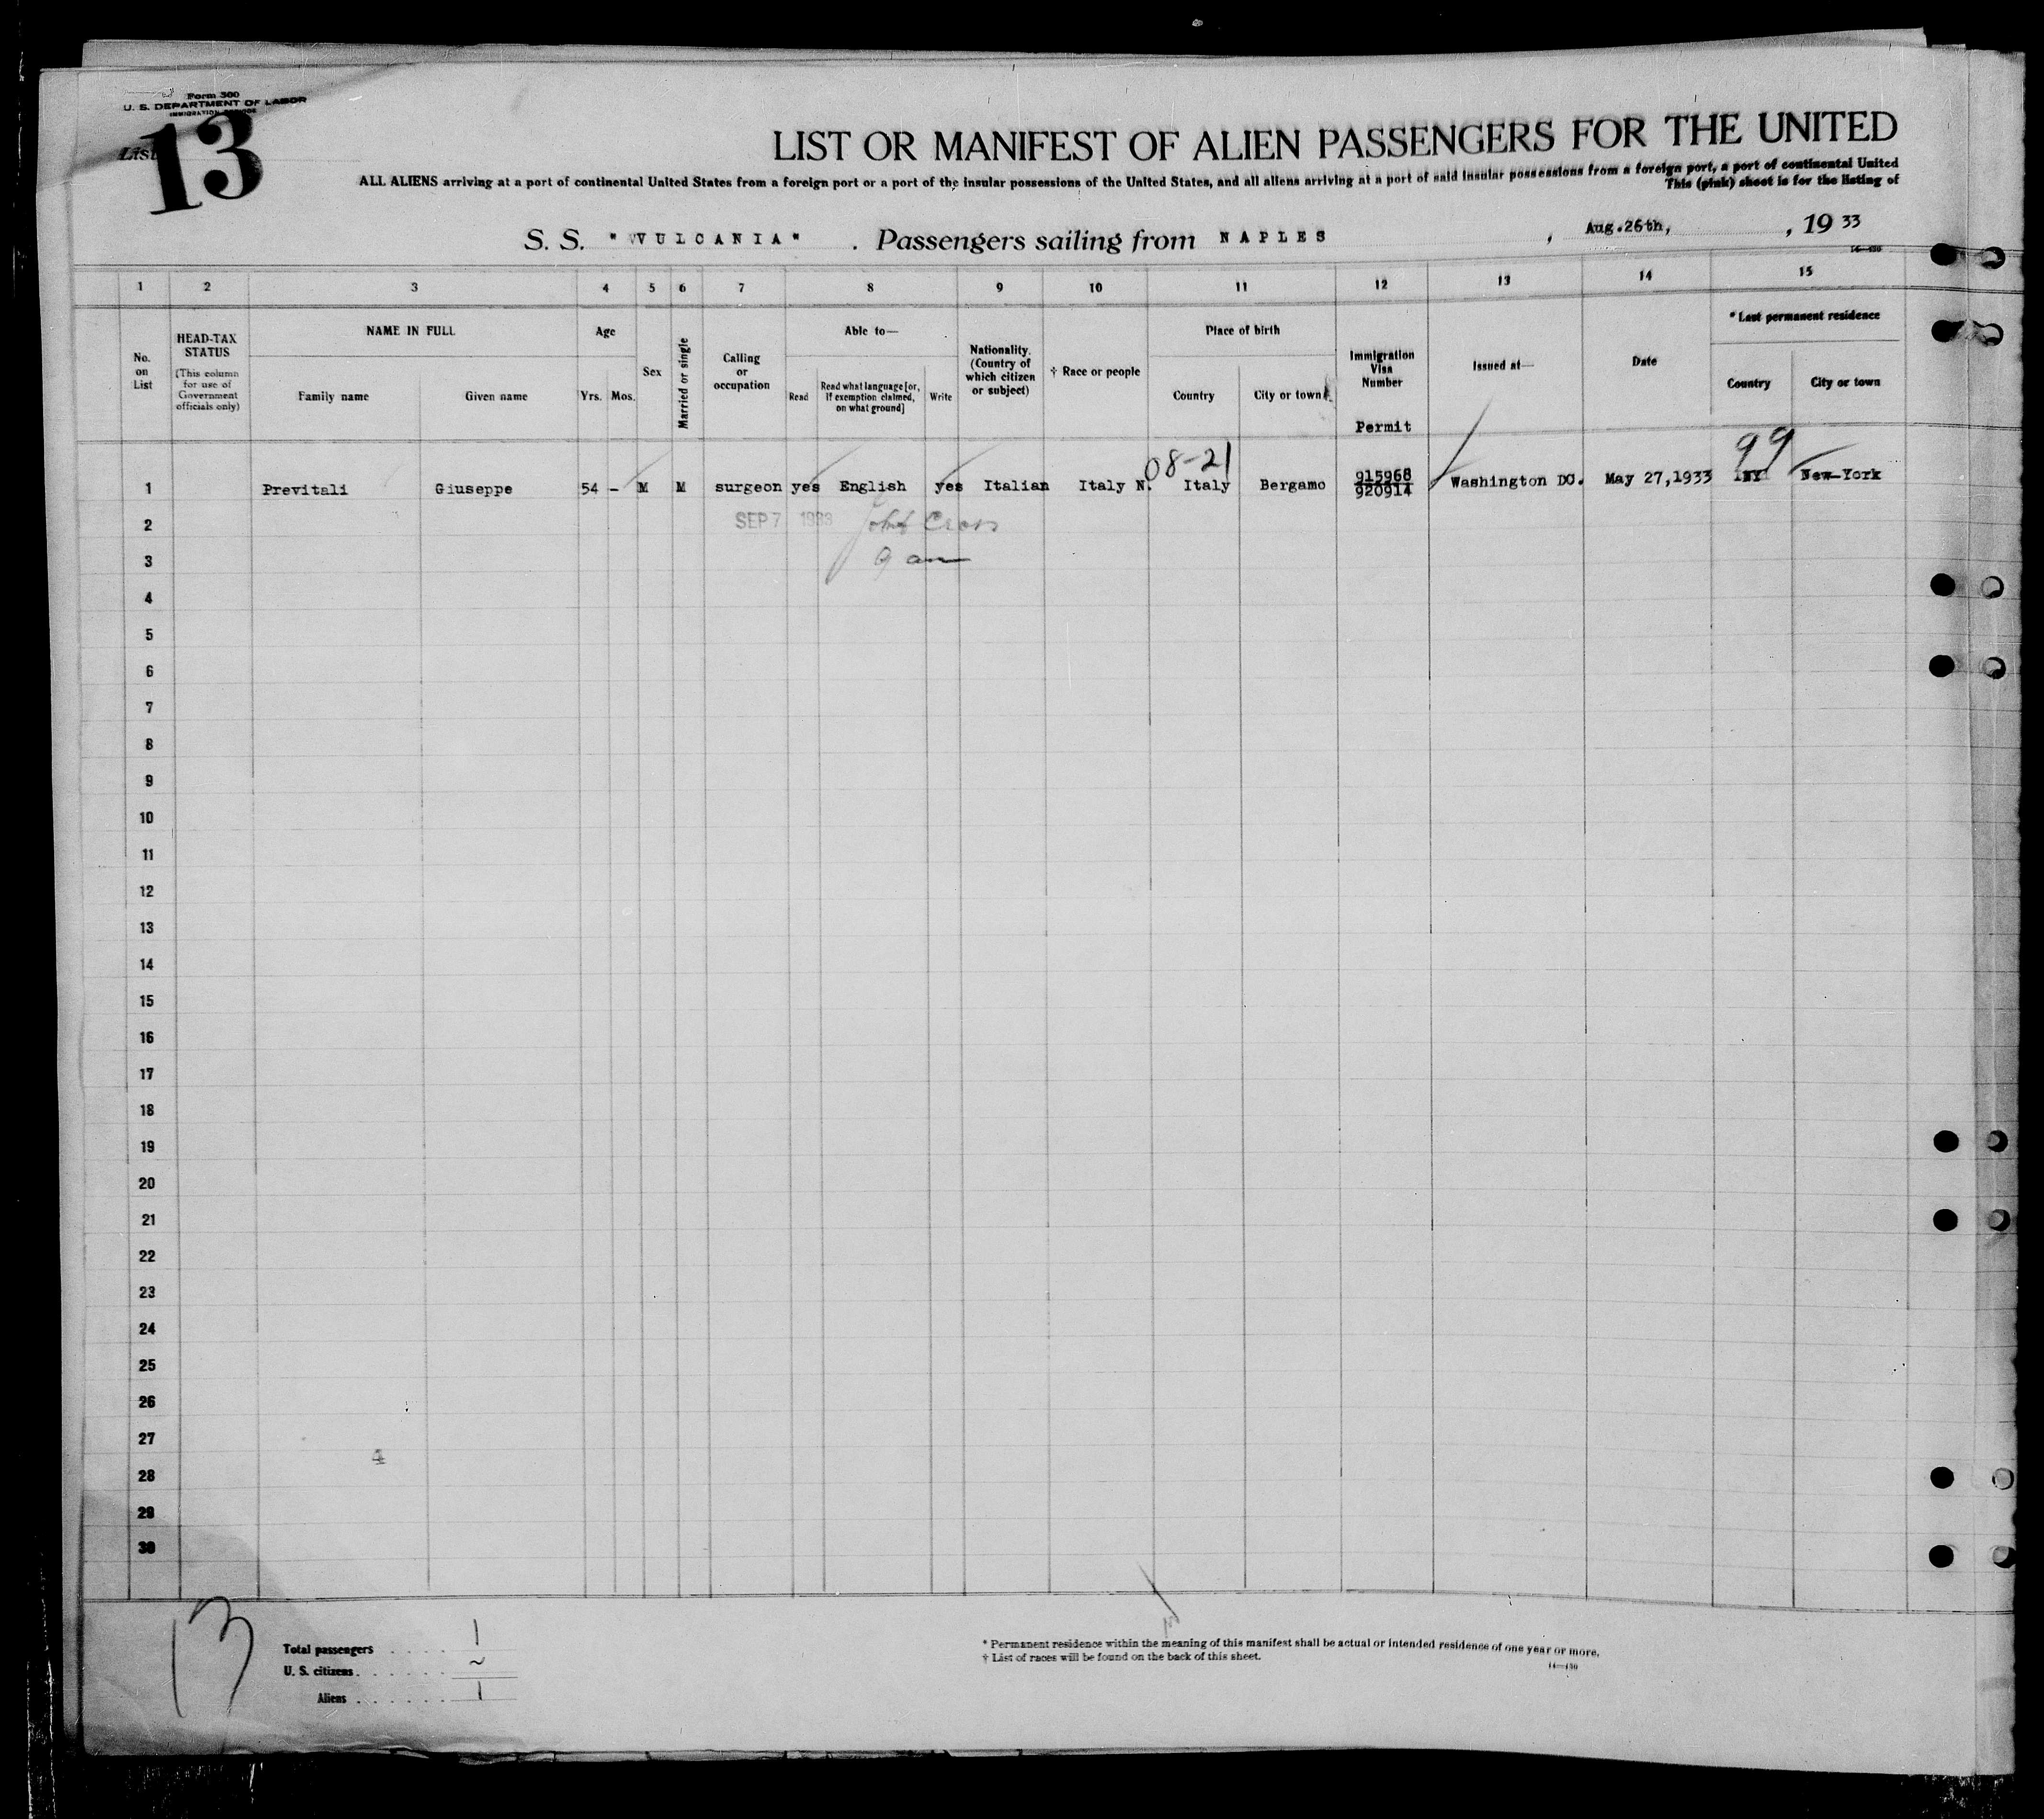 Form 500
U. S. DEPARTMENT OF LABOR
IMMIGRATION SERVICE
List 13
LIST OR MANIFEST OF ALIEN PASSENGERS FOR THE UNITED
ALL ALIENS arriving at a port of continental United States from a foreign port or a port of the insular possessions of the United States, and all aliens arriving at a port of said insular possessions from a foreign port, a port of continental United
This (pink) sheet is for the listing of
S. S. "VULCANIA" . Passengers sailing from NAPLES , Aug.26th, , 19 33
14—430
1 2 3 4 5 6 7 8 9 10 11 12 13 14 15
No. on List
HEAD-TAX STATUS (This column for use of Government officials only)
NAME IN FULL
Family name Given name
Age
Yrs. Mos.
Sex
Married or single
Calling or occupation
Able to—
Read
Read what language [or, if exemption claimed, on what ground]
Write
Nationality. (Country of which citizen or subject)
† Race or people
Place of birth
Country City or town
Immigration Visa Number
Permit
Issued at—
Date
* Last permanent residence
Country City or town
08-21 99
1 Previtali Giuseppe 54 - M M surgeon yes English yes Italian Italy N. Italy Bergamo 915968 Washington DC. May 27,1933 NY New-York
920914
2 SEP 7 1933
3
4
5
6
7
8
9
10
11
12
13
14
15
16
17
18
19
20
21
22
23
24
25
26
27
4
28
29
30
13
Total passengers . . . . 1
U. S. citizens . . . . . . ~
Aliens . . . . . . 1
* Permanent residence within the meaning of this manifest shall be actual or intended residence of one year or more.
† List of races will be found on the back of this sheet.
14—430